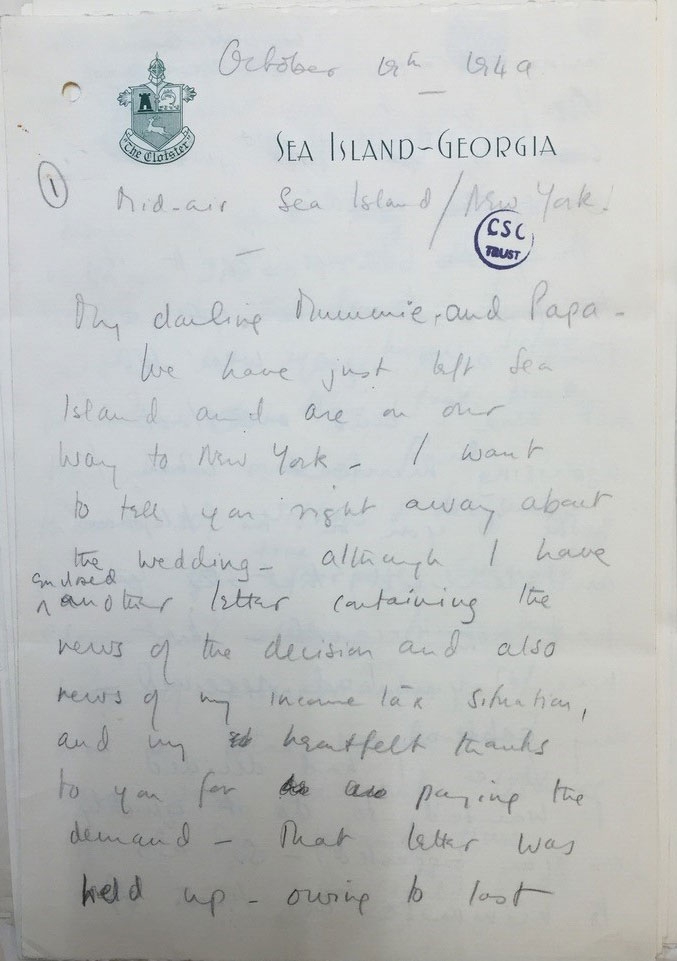 October 19th 1949
The Cloister
SEA ISLAND~GEORGIA
①
Mid-air Sea Island/New York!
CSC
TRUST
My darling Mummie, and Papa -
We have just left Sea
Island and are on our
way to New York - I want
to tell you right away about
the wedding - although I have
enclosed
^ another letter containing the
news of the decision and also
news of my income tax situation,
and my heartfelt thanks
to you for paying the
demand - That letter was
held up - owing to lost